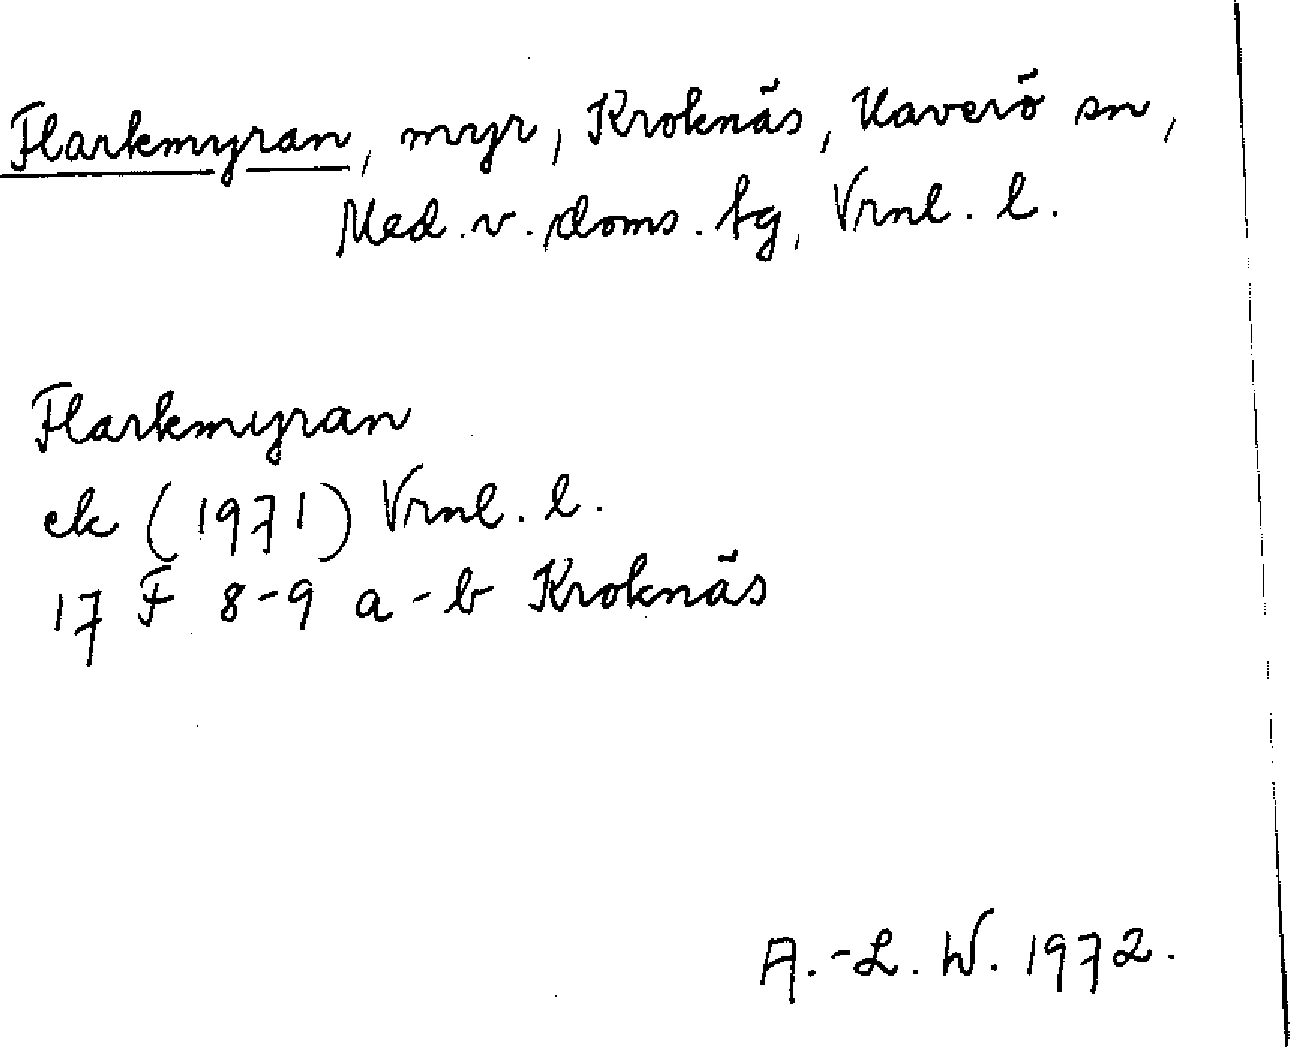 Flarkmyran, myr, Kroknäs, Haverö sn,
Med. v. doms. tg, Vrnl. l.
Flarkmyran
ek (1971) Vrnl. l.
17 F 8-9 a-b Kroknäs
A.-L. W. 1972.